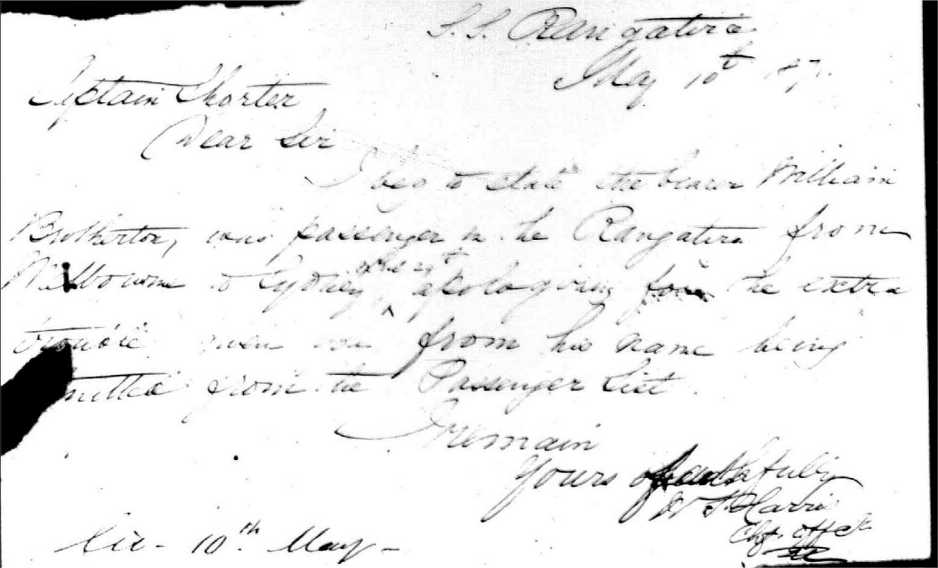 S. S. Rangatira
May 10th 187
Captain Shorter
Dear Sir
I beg to state the bearer William
Brotherton, was passenger in the Rangatira from
Melbourne to Sydney, apologising for the extra
trouble given you from his name being
omitted from the Passenger List.
I remain
Yours faithfully
W Harris
Chf. Offcr
10th May